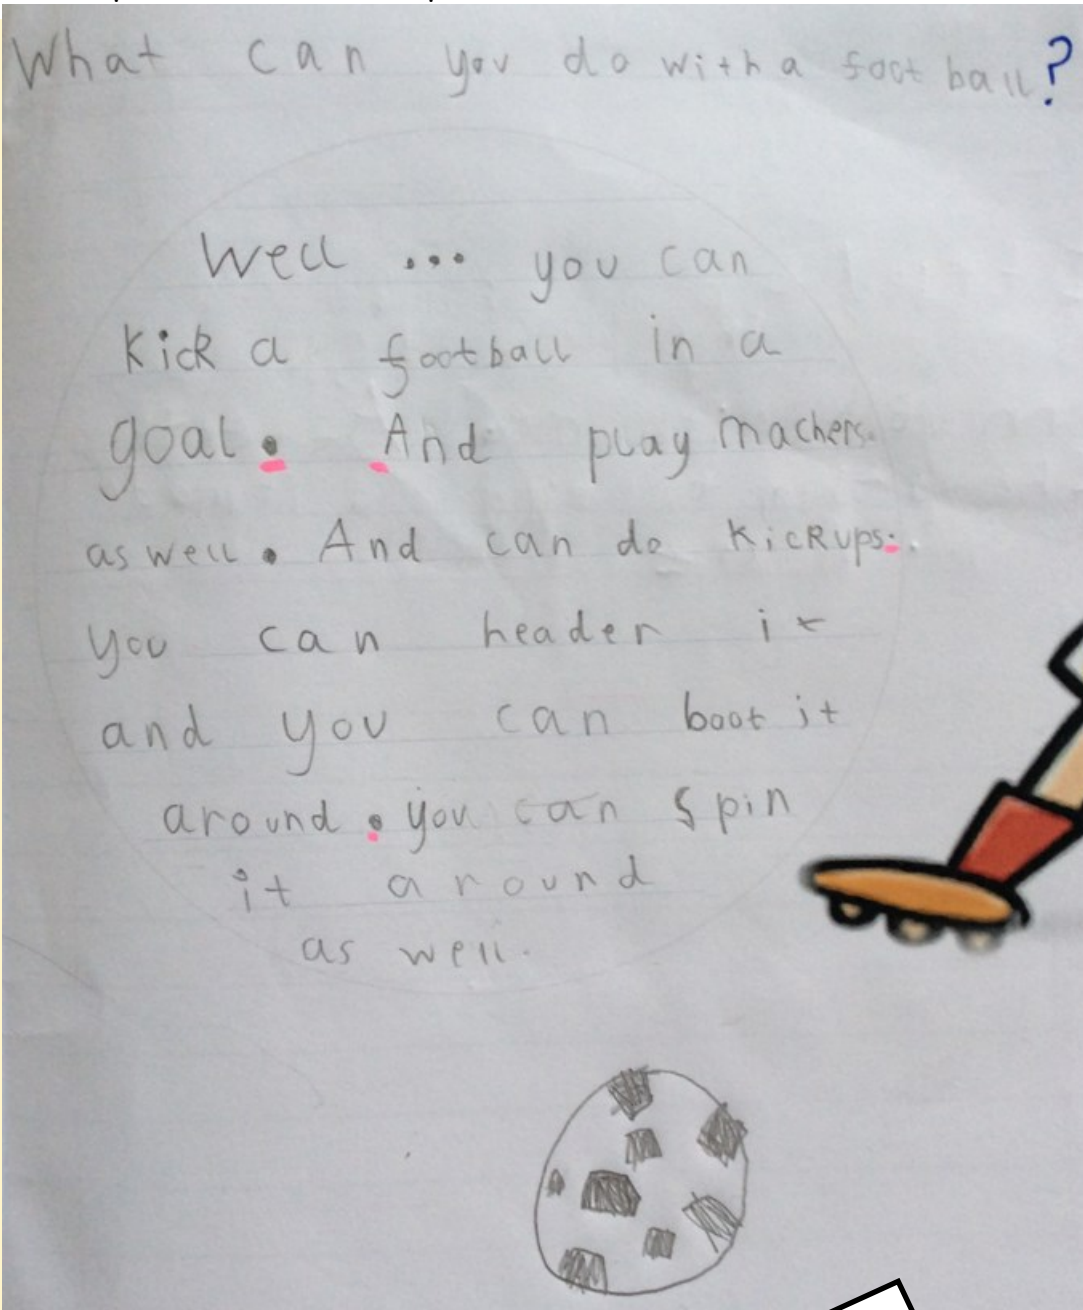 What can you do with a foot ball?
Well ... you can
kick a football in a
goal. And play machers.
as well. And can do kickups.
you can header it
and you can boot it
around. you can spin
it around
as well.